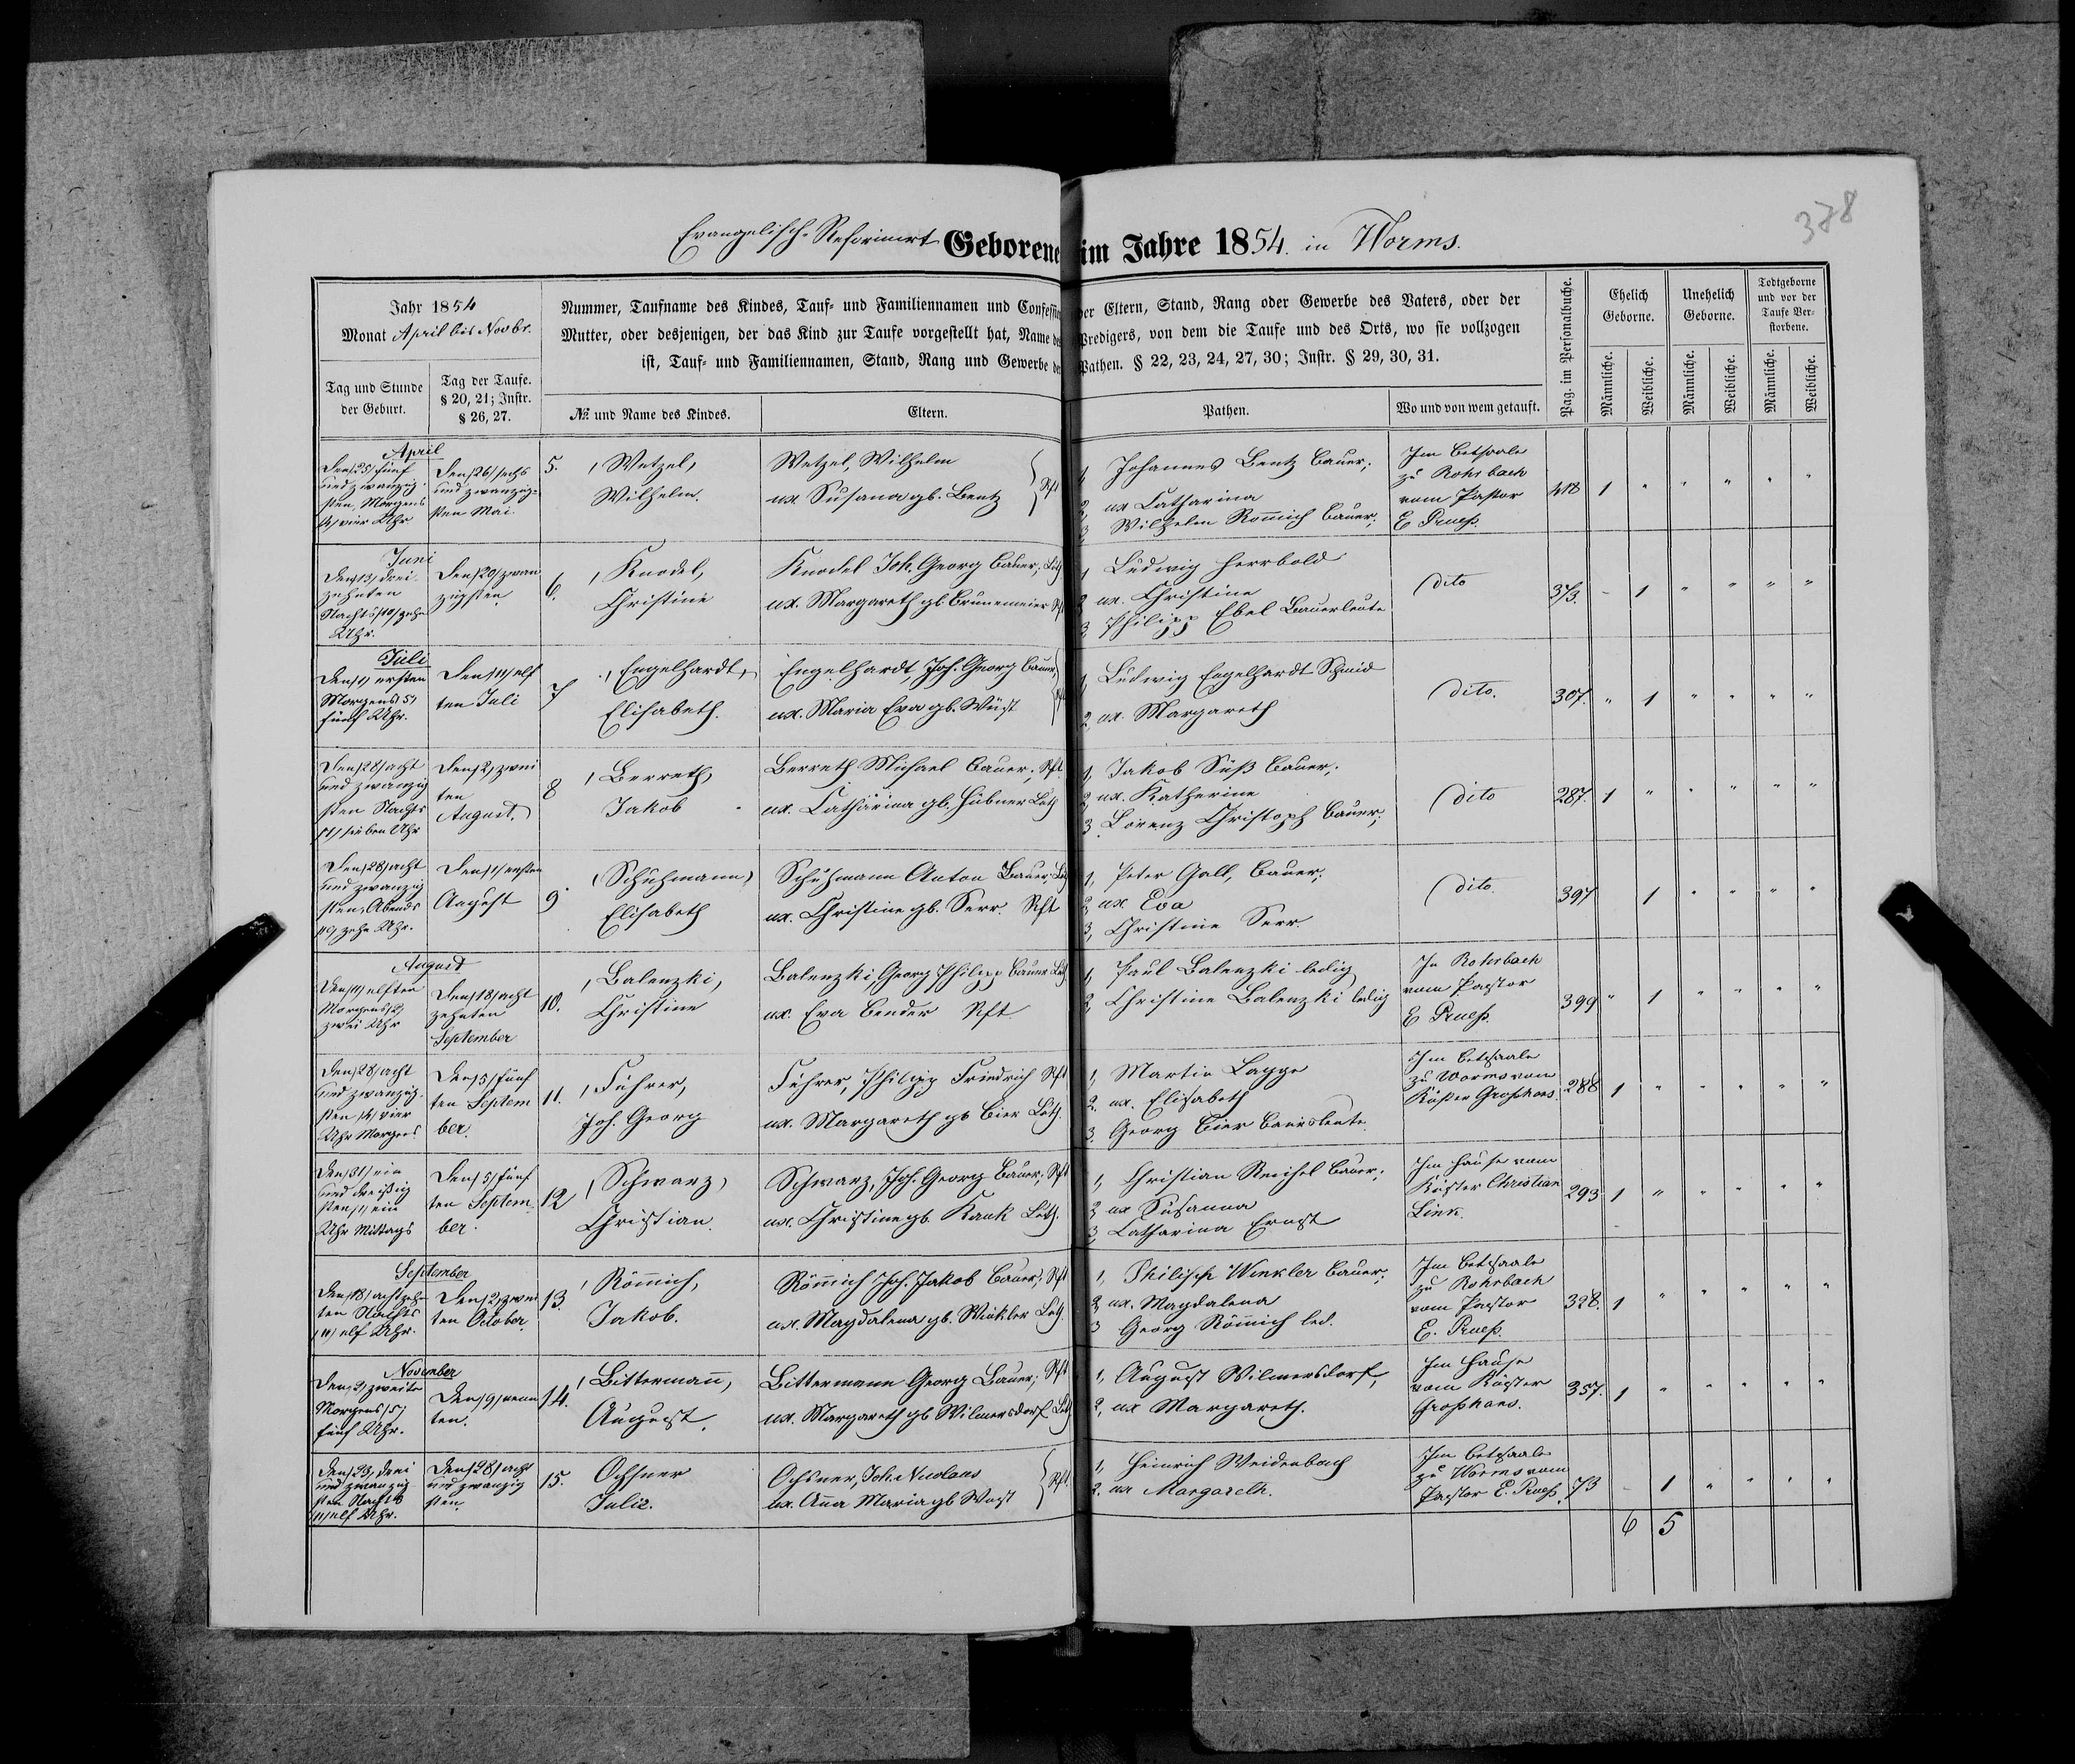 378
Evangelisch-Reformirt Geborene im Jahre 1854. in Worms.
Jahr 1854
Monat April bis Novbr.
Tag und Stunde
der Geburt.
Tag der Taufe.
§ 20, 21; Instr.
§ 26, 27.
Nummer, Taufname des Kindes, Tauf- und Familiennamen und Confession der Eltern, Stand, Rang oder Gewerbe des Vaters, oder der
Mutter, oder desjenigen, der das Kind zur Taufe vorgestellt hat, Name des Predigers, von dem die Taufe und des Orts, wo sie vollzogen
ist, Tauf- und Familiennamen, Stand, Rang und Gewerbe der Pathen. § 22, 23, 24, 27, 30; Instr. § 29, 30, 31.
№ und Name des Kindes.
Eltern.
Pathen.
Wo und von wem getauft.
Pag. im Personalbuche.
Ehelich
Geborne.
Unehelich
Geborne.
Todtgeborne
und vor der
Taufe Ver-
storbene.
Männliche.
Weibliche.
Männliche.
Weibliche.
Männliche.
Weibliche.
April
Den /25/ fünf
und zwanzig-
sten, Morgens
/4/ vier Uhr
Den /26/ sechs
und zwanzig-
sten Mai.
5.
Wetzel,
Wilhelm.
Wetzel, Wilhelm
ux Susana gb. Bentz
Rft
1, Johannes Bentz Bauer,
2, ux Catharina
3, Wilhelm Romich Bauer,
Im Betsaale
zu Rohrbach
vom Pastor
E Prueß.
418 1 " " " " "
Juni
Den /13/ drei-
zehnten
Nachts /10/ zehn
Uhr.
Den /20/ zwan
zigsten
6.
Knodel,
Christine
Knodel Joh. Georg Bauer, Lth
ux. Margareth gb Brunemeier Rft
1, Ludwig Herrbold
2, ux. Christine
3, Philipp Ebel Bauerleute
dito
373. - 1 " " " "
Juli
Den /1/ ersten
Morgens /5/
fünf Uhr.
Den /11/ elf
ten Juli
7
Engelhardt,
Elisabeth.
Engelhardt, Joh. Georg Bauer,
ux. Maria Eva gb. Wüst
1, Ludwig Engelhardt Schmid
2, ux. Margareth
dito.
307. " 1 " " " "
Den /28/ acht
und zwanzig
sten Nachts
/7/ sieben Uhr
Den /2/ zwei
ten
August.
8
Berreth,
Jakob
Berreth Michael Bauer, Rft.
ux. Catharina gb. Hübner Lth
1, Jakob Süß Bauer,
2, ux. Katherine
3, Lorenz Christoph Bauer,
dito
287. 1 " " " " "
Den /28/ acht
und zwanzig
sten, Abends
/10/ zehn Uhr.
Den /1/ ersten
August
9
Schuhmann,
Elisabeth
Schuhmann Anton Bauer, Lth
ux. Christine gb. Serr. Rft
1, Peter Gall, Bauer,
2, ux Eva
3, Christine Serr.
dito.
397 1 " " " "
August
Den /11/ elften
Morgens /2/
zwei Uhr
Den /18/ acht
zehnten
September
10.
Balenzki,
Christine
Balenzki, Georg Philipp Bauer Lth.
ux. Eva Bender Rft.
1, Paul Balenzki ledig
2, Christine Balenzki ledig
In Rohrbach
vom Pastor
E Prueß.
399 " 1 " " " "
Den /28/ acht
und zwanzig-
sten /4/ vier
Uhr Morgens
Den /5/ fünf
ten Septem
ber.
11.
Fuhrer,
Joh. Georg
Fuhrer, Philipp Friedrich Rft
ux. Margareth gb Bier Lth.
1, Martin Lagge
2. ux. Elisabeth
3. Georg Bier Bauersleute.
Im Betsaale
zu Worms vom
Küster Groshans.
288 1 " " " " "
Den /31/ ein
und dreißig
sten /1/ ein
Uhr Mittags
Den /5/ fünf
ten Septem
ber.
12
Schwarz,
Christian.
Schwarz, Joh. Georg Bauer, Rft
ux. Christine gb. Kauk Lth.
1, Christian Reichel Bauer,
2, ux Susanna
3, Catharina Ernst
Im Hause vom
Küster Christian
Link.
293 1 " " " " "
September
Den /18/ achtzehn
ten Nachts
/11/ elf Uhr.
Den /2/ zwei
ten October
13.
Römich,
Jakob.
Römich Joh. Jakob Bauer, Rft
ux. Magdalena gb. Winkler Lth.
1, Philipp Winkler Bauer,
2, ux. Magdalena
3 Georg Römich led.
Im Betsaale
zu Rohrbach
vom Pastor
E. Prueß.
328. 1 " " " " "
November
Den /2/ zweite
Morgens /5/
fünf Uhr.
Den /9/ neun
ten.
14.
Bittermann,
August.
Bittermann Georg Bauer, Rft
ux. Margareth gb Wilmersdorf Lth
1, August Wilmersdorf,
2, ux Margareth.
Im Hause
vom Küster
Groshans.
357. 1 " " " " "
Den /23/ drei
und zwanzig
sten Nachts
/11/ elf Uhr.
Den /28/ acht
und zwanzig
sten
15.
Ochsner
Julie.
Ochsner, Joh. Nicolaus
ux. Anna Maria gb Wüst
Rft.
1, Heinrich Weidenbach
2. ux Margareth.
Im Betsaale
zu Worms vom
Pastor E. Prueß.
73 - 1 " " " "
6 5